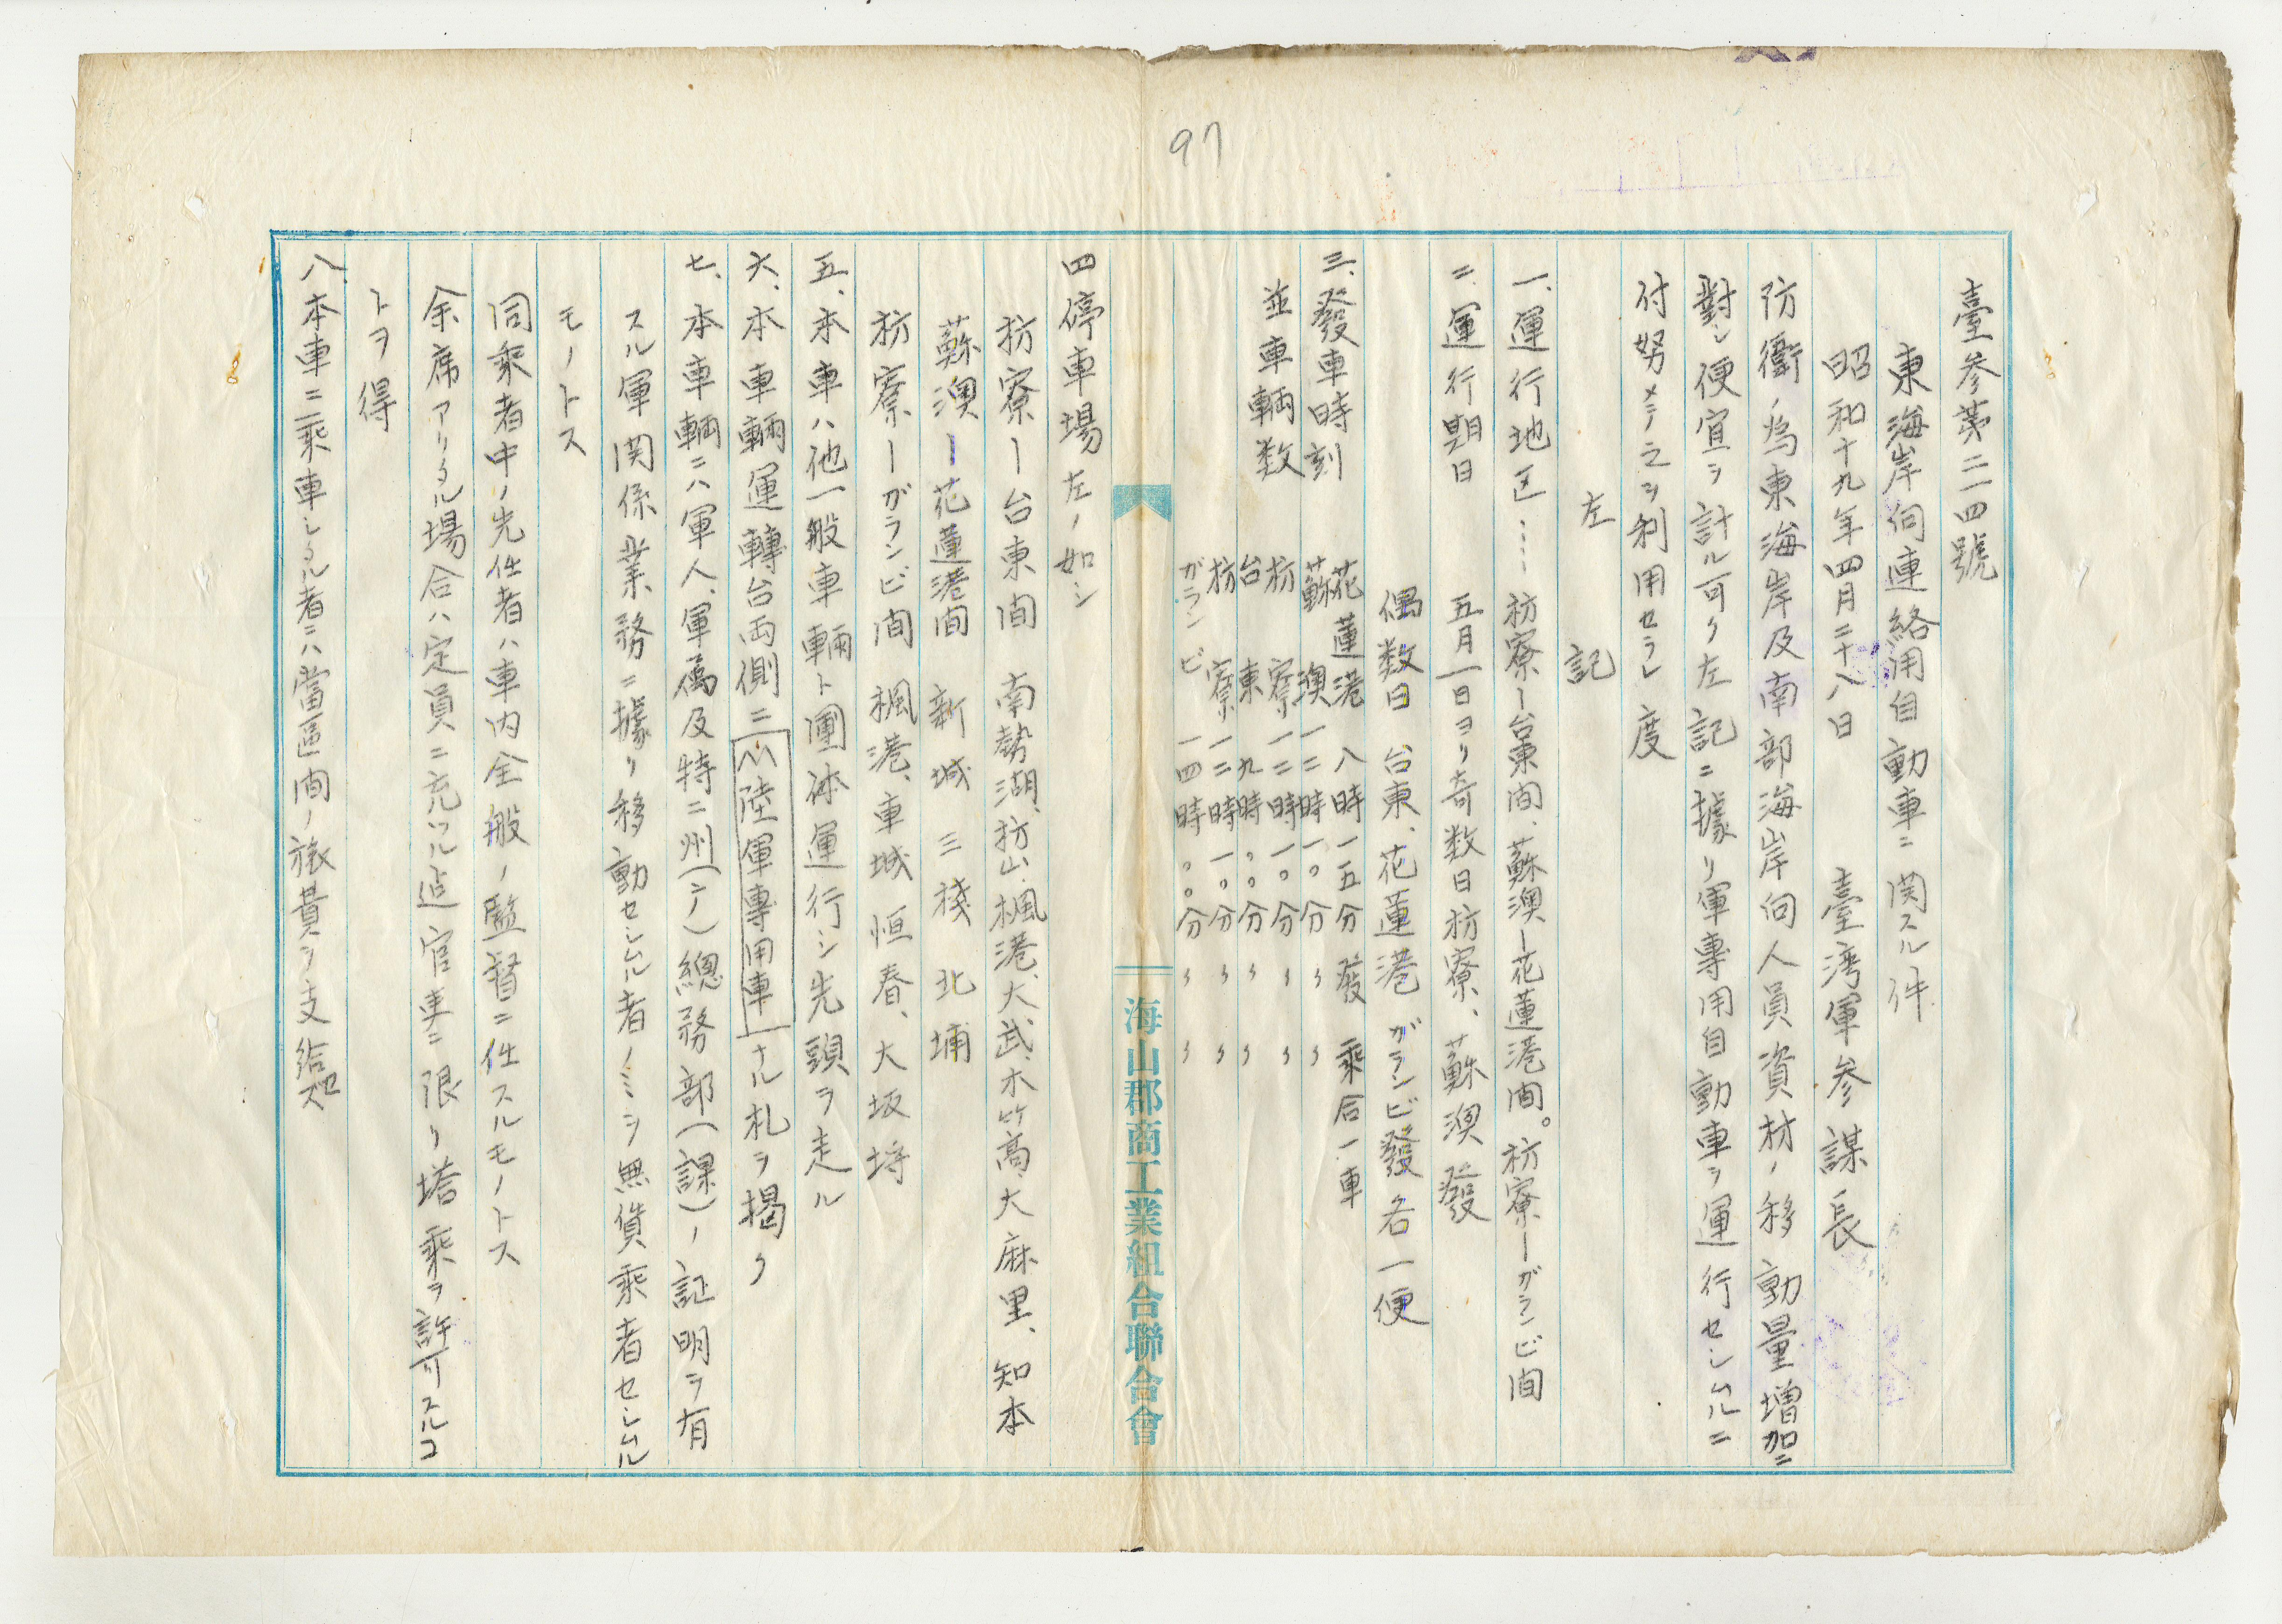 97
臺参第二一四號
東海岸向連絡用自動車ニ関スル件
昭和十九年四月二十八日　臺湾軍参謀長
防衞ノ為東海岸及南部海岸向人員資材ノ移動量増加ニ
對シ便宜ヲ計ル可ク左記ニ據リ軍專用自動車ヲ運行セシムルニ
付努メテ之ヲ利用セラレ度
左　記
一、運行地区……枋寮ー台東間、蘇澳ー花蓮港間。枋寮ーガランビ間
二、運行期日　五月一日ヨリ奇数日枋寮、蘇澳發
偶数日　台東、花蓮港　ガランビ發各一便
三、發車時刻　花蓮港　八時一五分發　乘合一車
蘇澳　一二時一〇分〃　〃
並車輌数　枋寮　一二時一〇分〃　〃
台東　九時〇〇分〃　〃
枋寮　一二時一〇分〃　〃
ガランビ　一四時〇〇分〃　〃
海山郡商工業組合聯合會
四停車場　左ノ如シ
枋寮ー台東間　南勢湖、枋山、楓港、大武、大竹高、大麻里、知本
蘇澳ー花蓮港間　新城　三棧　北埔
枋寮ーガランビ間　楓港、車城　恒春、大坂埒
五、本車ハ他一般車輌ト團体運行シ先頭ヲ走ル
六、本車輌運轉台両側ニ陸軍專用車ナル札ヲ掲ク
七、本車輌ニハ軍人、軍属及特ニ州(庁)總務部(課)ノ証明ヲ有
スル軍関係業務ニ據リ移動セシムル者ノミヲ無償乘者セシムル
モノトス
同乘者中ノ先任者ハ車内全般ノ監督ニ任スルモノトス
余席アリタル場合ハ定員ニ充ツル迠官吏ニ限リ塔乘ヲ許可スルコ
トヲ得
八、本車ニ乘車シタル者ニハ當區間ノ旅費ヲ支給セズ